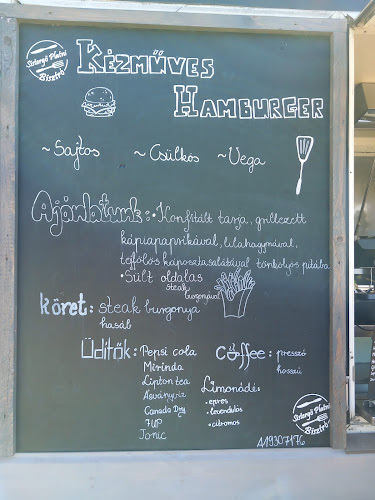 Sistergő Platni Bisztró
KÉZMŰVES
HAMBURGER
~Sajtos ~Csülkös ~Vega
Ajánlatunk: •Konfitált tarja, grillezett
kápiapaprikával, lilahagymával,
tejfölös káposztasalátával tönkölyös pitába
•Sült oldalas
steak
burgonyával
köret: steak burgonya
hasáb
Üdítők: Pepsi cola
Mirinda
Lipton tea
Ásványvíz
Canada Dry
7UP
Tonic
coffee: presszó
hosszú
Limonádé:
•epres
•levendulás
•citromos
Sistergő Platni Bisztró
419307176